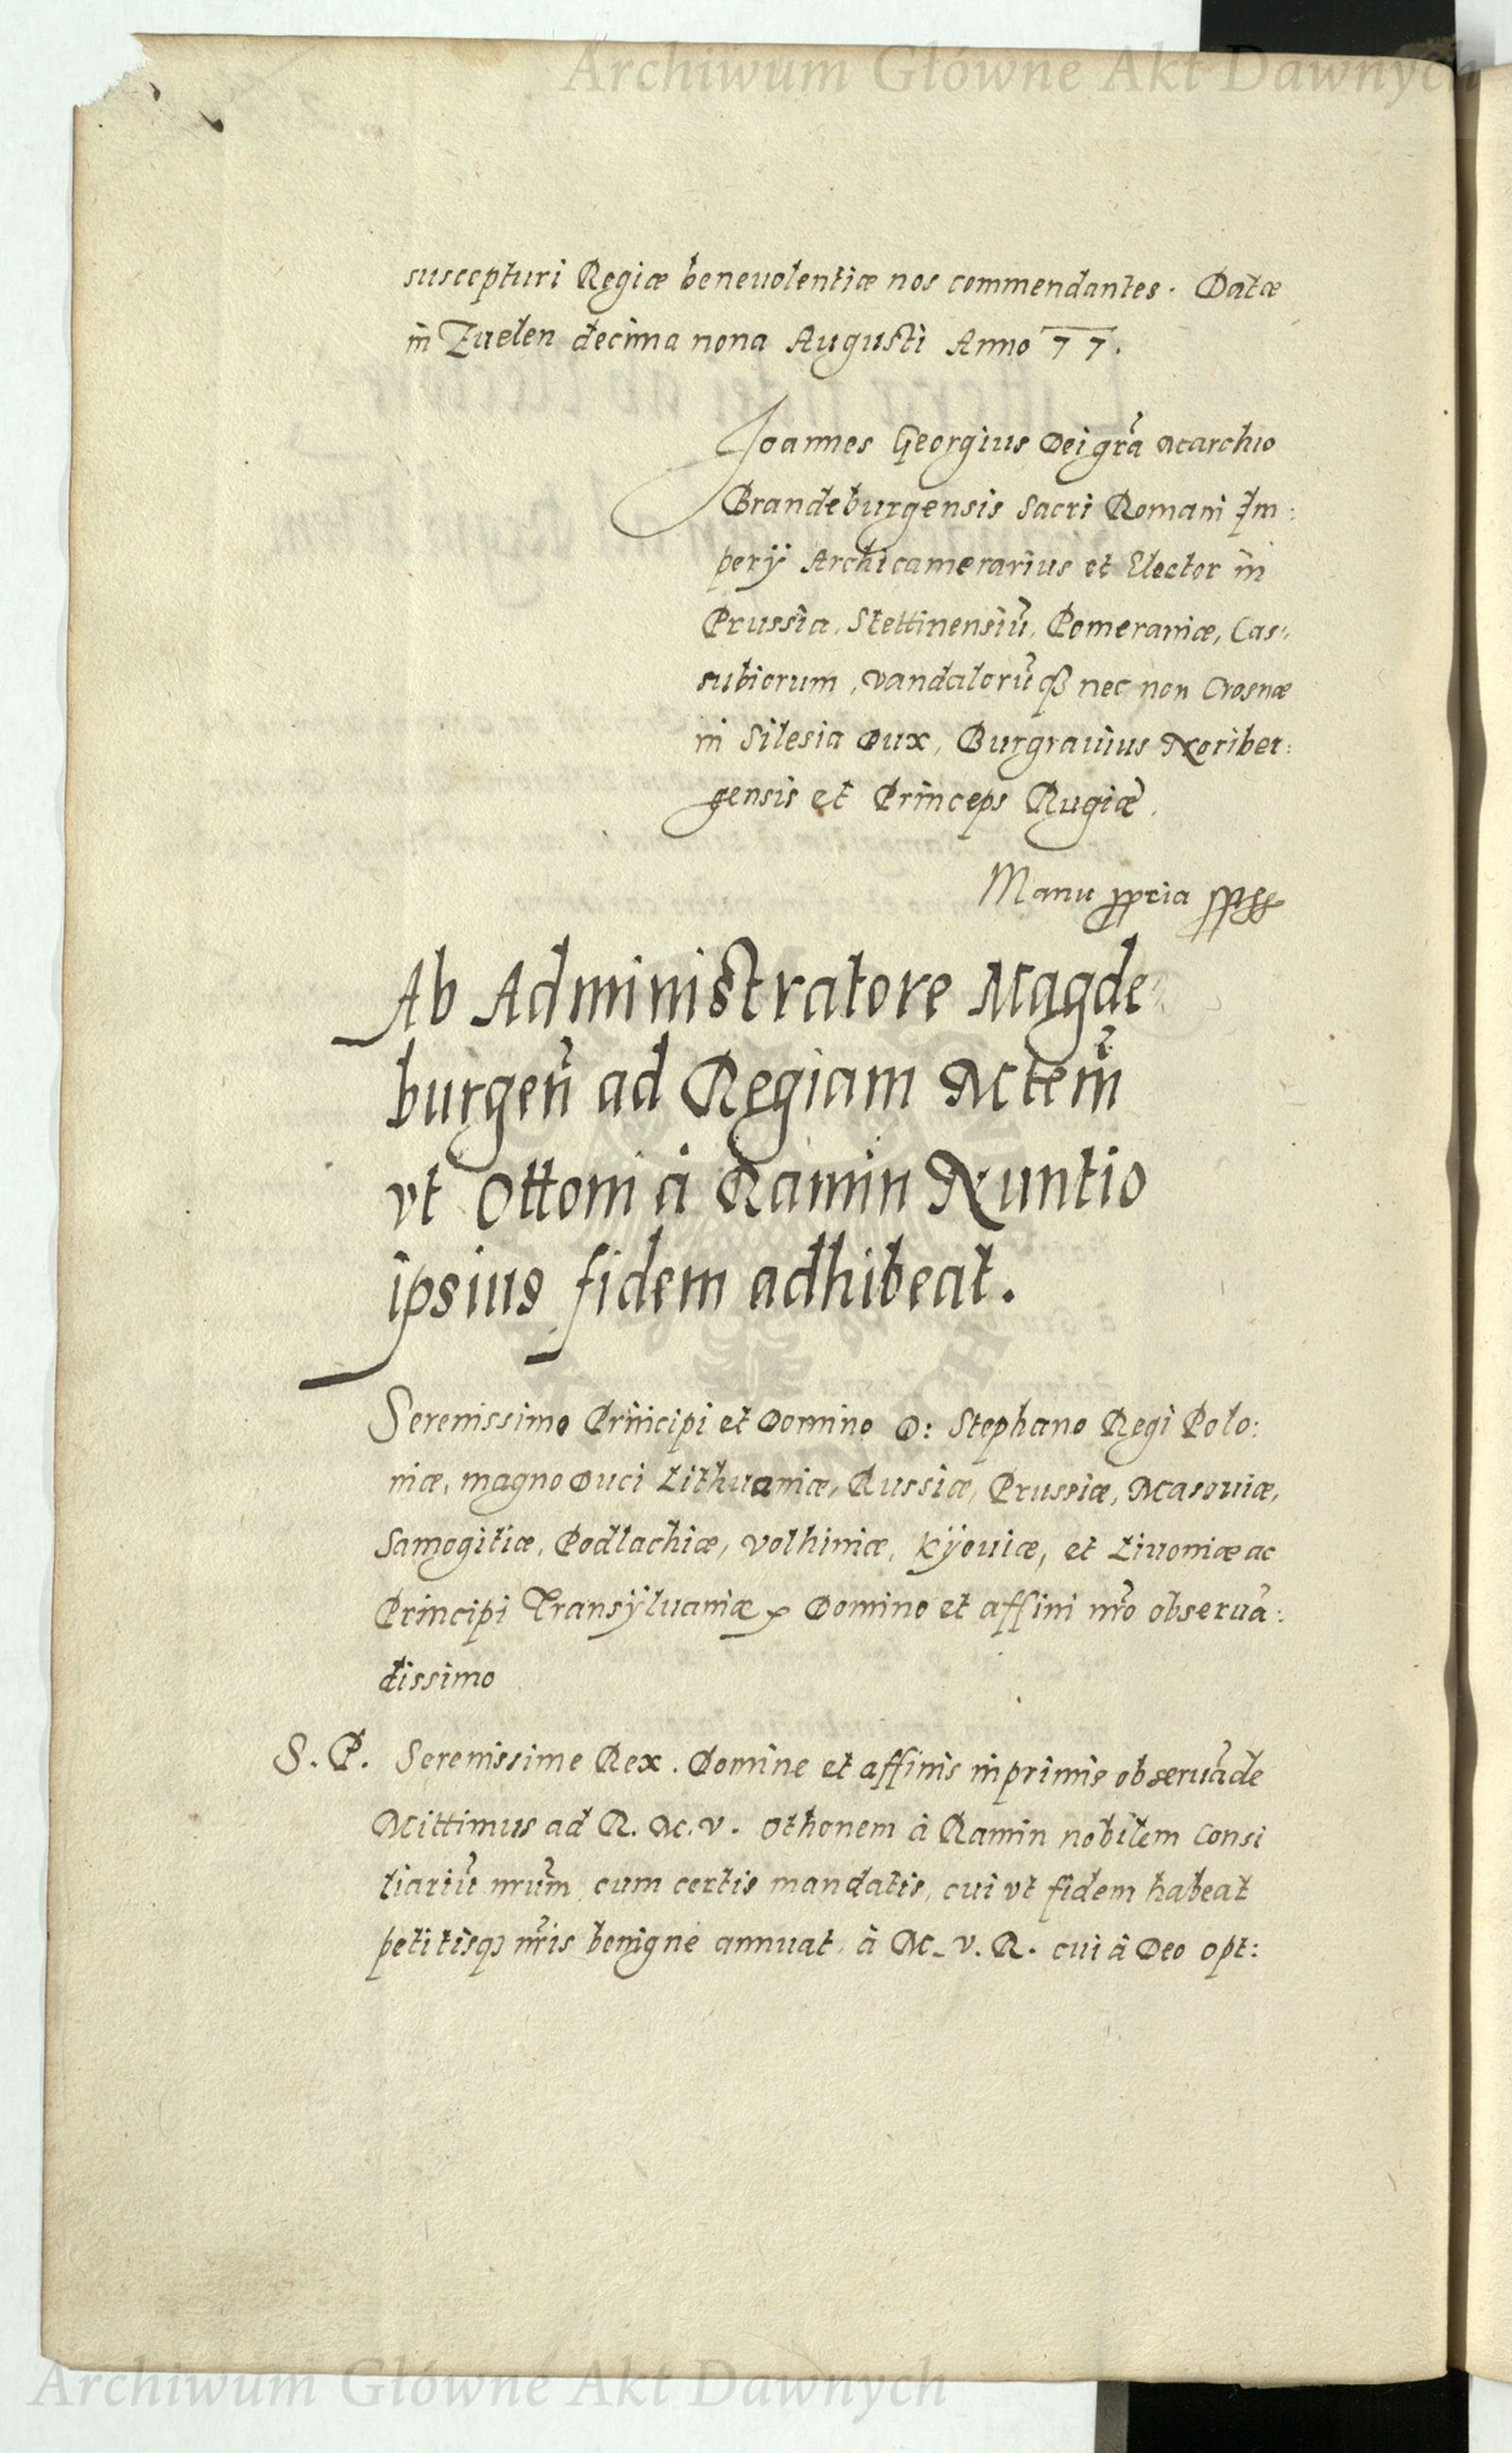 Archiwum Główne Akt Dawnych
suscepturi Regiæ beneuolentiæ nos commendantes. Datæ
in Zuelen decima nona Augusti Anno 77.
Joannes Georgius Dei gr̃a Marchio
Brandeburgensis Sacri Romani Im:
perÿ Archicamerarius et Elector in
Prussia, Stettinensiũ, Pomeraniæ, Cas:
subiorum, Vandalorũqȝ nec non Crosnæ
in Silesia Dux, Burgrauius Noriber:
gensis et Princeps Rugiæ.
Manu ppria
Ab Administratore Magde
burgeñ ad Regiam Mtem̃
vt Ottoni à Ramin Nuntio
ipsius fidem adhibeat.
Serenissimo Principi et Domino D: Stephano Regi Polo:
niæ, magno Duci Lithuaniæ, Russiæ, Prussiæ, Masouiæ,
Samogitiæ, Podlachiæ, Volhiniæ, Kÿouiæ, et Liuoniæ ac
Principi Transÿluaniæ Domino et affini nr̃o obseruã:
dissimo
S. P. Serenissime Rex. Domine et affinis inprimis obseruãde
Mittimus ad R. M. V. Othonem à Ramin nobilem Consi
liariũ nr̃um cum certis mandatis, cui vt fidem habeat
petitisqȝ nr̃is benigne annuat, à M. V. R. cui à Deo opt:
Archiwum Główne Akt Dawnych